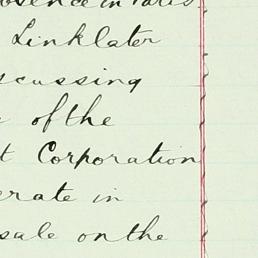 absence in Paris
Linklater
scussing
of the
t Corporation
erate in
sale on the